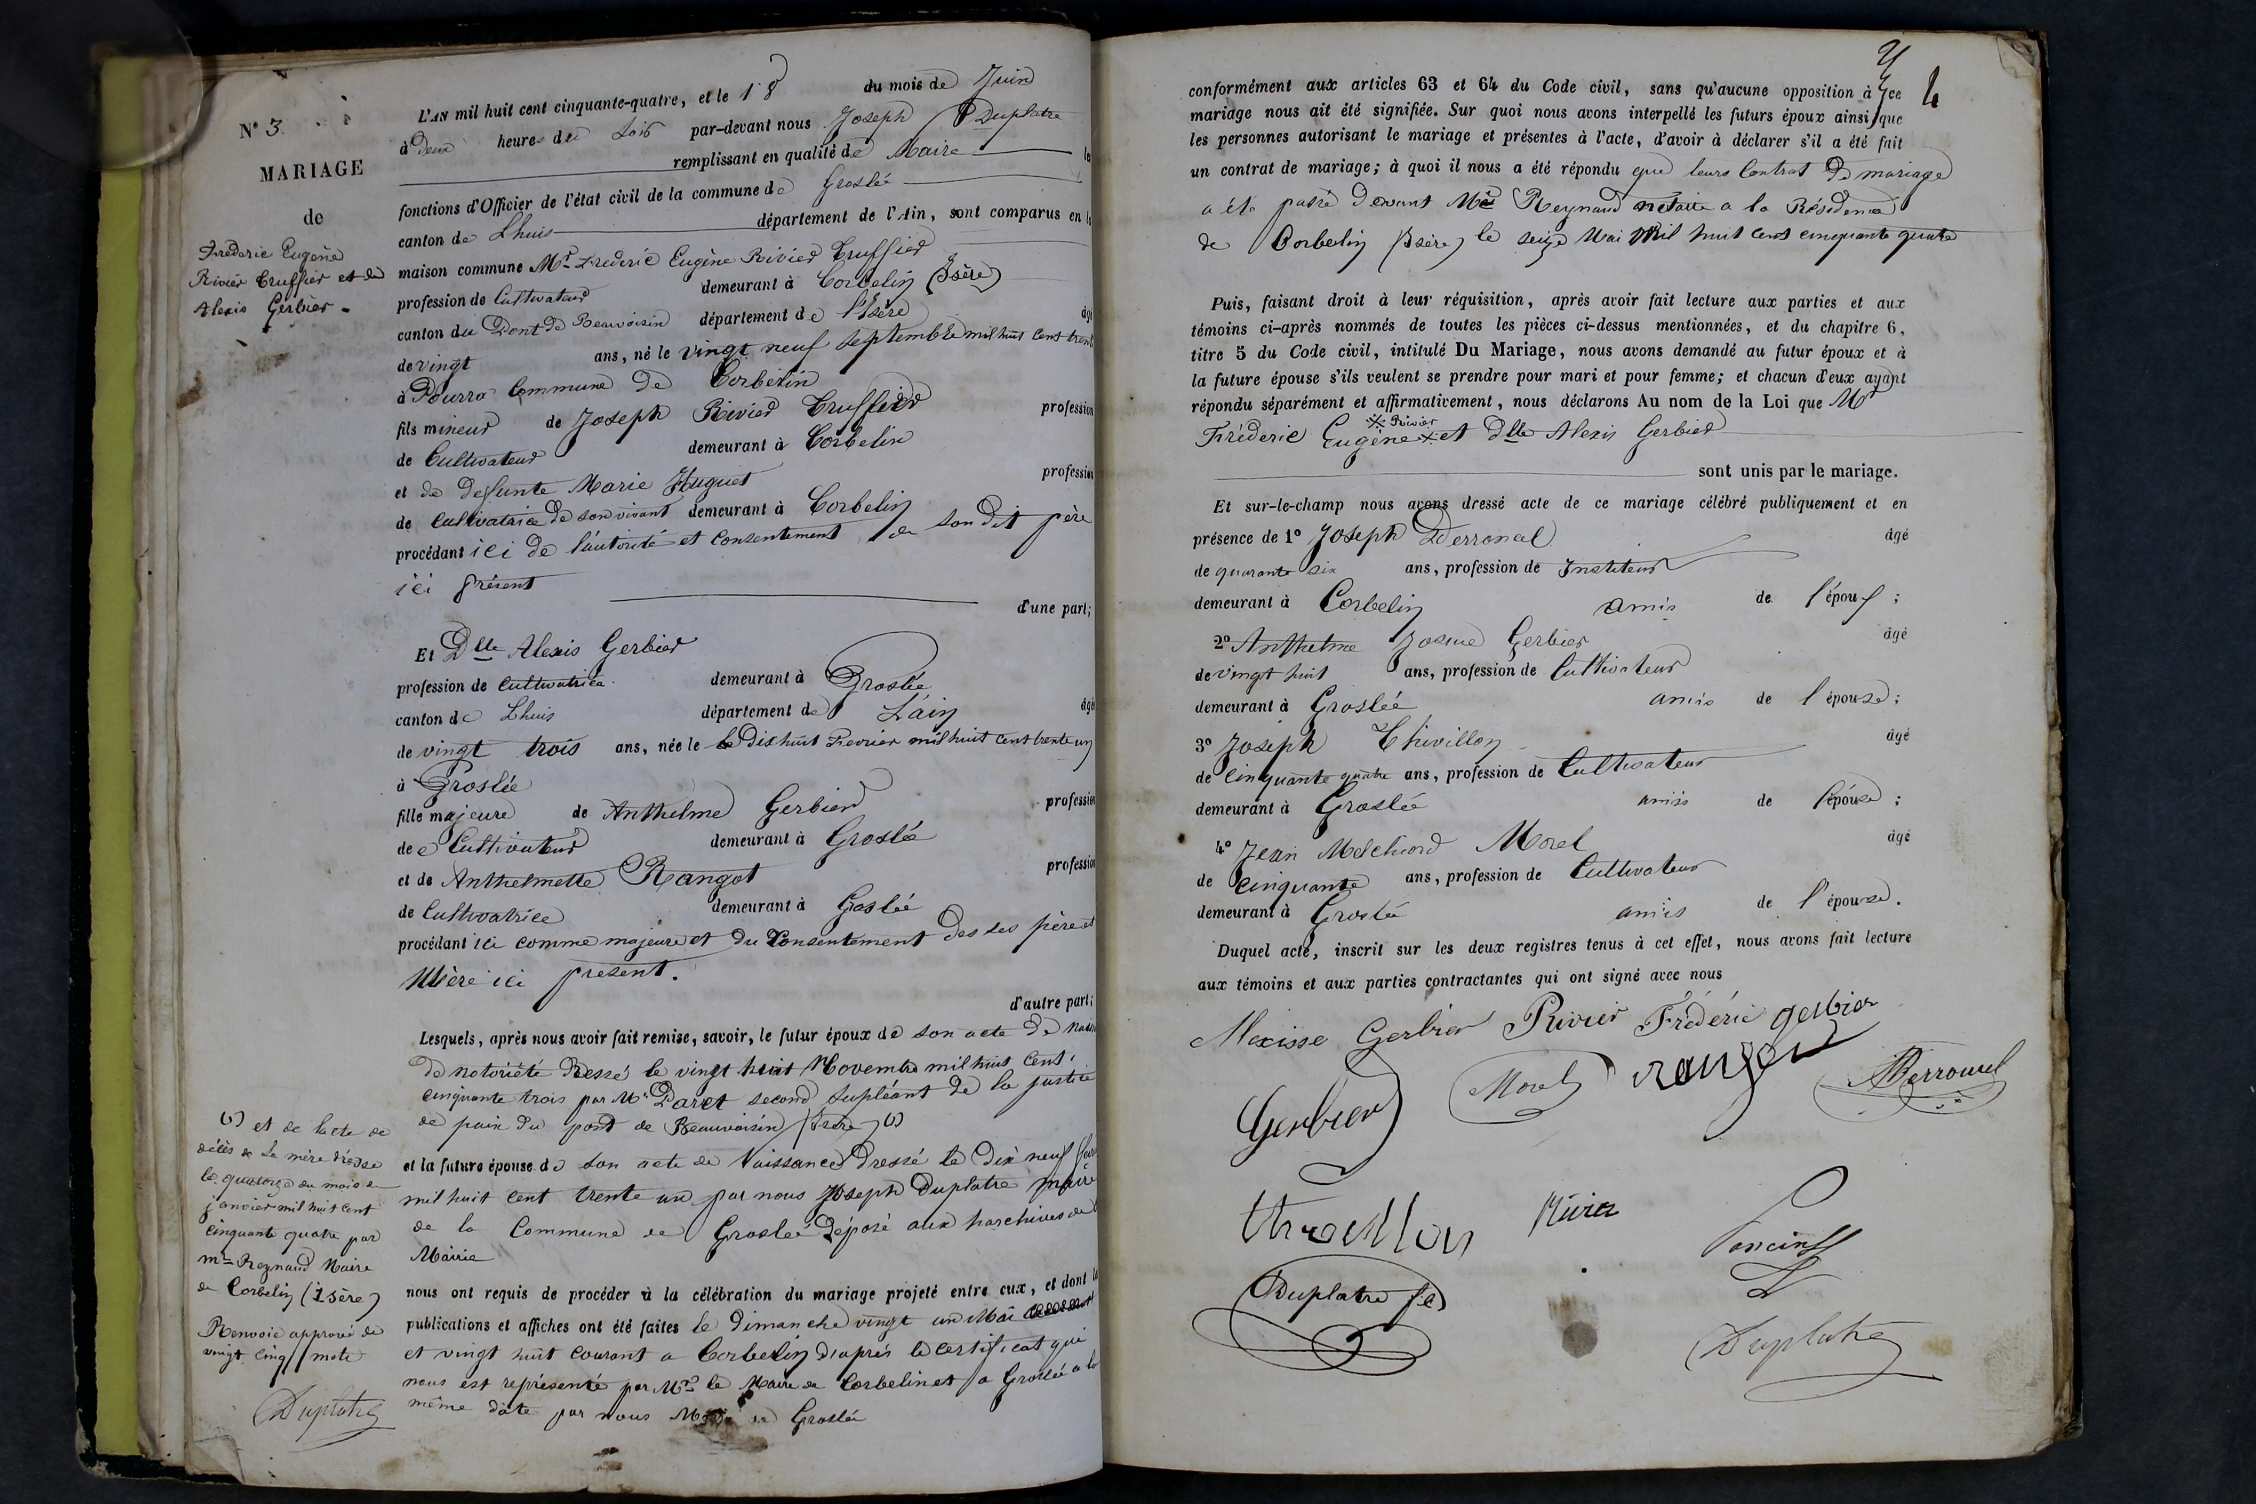 N° 3
MARIAGE
de
Frederic Eugène
Rivier Truffier et de
Alexis Gerbier
L'AN mil huit cent cinquante-quatre, et le 18 du mois de Juin
à Deux heures du Soir par-devant nous Joseph Duplatre
remplissant en qualité de Maire les
fonctions d'Officier de l'état civil de la commune de Groslée
canton de Lhuis département de l'Ain, sont comparus en la
maison commune Mr Frederic Eugène Rivier Truffier
profession de Cultivateur demeurant à Corbelin (Isère)
canton du Pont de Beauvoisin département de l'Isère âgé
de vingt ans, né le vingt neuf Septembre mil huit cent trent
à commune de Corbelin
fils mineur de Joseph Rivier Truffier profession
de Cultivateur demeurant à Corbelin
et de defunte Marie Huguet profession
de cultivatrice de son vivant demeurant à Corbelin
procédant ici de l'autorité et consentement de son dit père
ici présent
d'une part;
Et Dlle Alexis Gerbier
profession de cultivatrice demeurant à Groslée
canton de Lhuis département de L'ain âgé
de vingt trois ans, née le le dixhuit Fevrier mil huit cent trente un
à Groslée
fille majeure de Anthelme Gerbier profession
de Cultivateur demeurant à Groslée
et de Anthelmette Rangot profession
de Cultivatrice demeurant à Goslée
procédant ici comme majeure et du Consentement des ses père et
Mère ici present.
d'autre part;
Lesquels, après nous avoir fait remise, savoir, le futur époux de son acte de
de notoriété dressé le vingt huit Novembre mil huit cent
cinquante trois par Mr second supléant de la justice
de paix du pont de Beauvoisin (Isère) (1)
et la future épouse de son acte de Naissance dressé le dix neuf
mil huit cent trente un par nous Joseph Duplatre maire
de la Commune de Groslée déposé aux harchives de
Mairie
nous ont requis de procéder à la célébration du mariage projeté entre eux, et dont les
publications et affiches ont été faites le dimanche vingt un Mai
et vingt huit courant a Corbelin d'après le certificat qui
nous est représenté par Mr le Maire de Corbelin et a Groslée a la
même date par nous Maire de Groslée
(1) et de lacte de
décès de la mère dressé
le quatorze du mois de
janvier mil huit cent
cinquante quatre par
mr Reynaud Maire
de Corbelin (isère)
Renvoie approuvé de
vingt cinq mots
Duplatre
4
conformément aux articles 63 et 64 du Code civil, sans qu'aucune opposition à ce
mariage nous ait été signifiée. Sur quoi nous avons interpellé les futurs époux ainsi que
les personnes autorisant le mariage et présentes à l'acte, d'avoir à déclarer s'il a été fait
un contrat de mariage; à quoi il nous a été répondu que leurs Contrat de mariage
a été passé devant Me Reynaud notaire a la Résidence
de Corbelin (Isère) le seize Mai mil huit cent cinquante quatre
Puis, faisant droit à leur réquisition, après avoir fait lecture aux parties et aux
témoins ci-après nommés de toutes les pièces ci-dessus mentionnées, et du chapitre 6,
titre 5 du Code civil, intitulé Du Mariage, nous avons demandé au futur époux et à
la future épouse s'ils veulent se prendre pour mari et pour femme; et chacun d'eux ayant
répondu séparément et affirmativement, nous déclarons Au nom de la Loi que Mr
Rivier
Fréderic Eugène et Dlle Alexis Gerbier
sont unis par le mariage.
Et sur-le-champ nous avons dressé acte de ce mariage célébré publiquement et en
présence de 1° Joseph âgé
de quarante six ans, profession de Instituteur
demeurant à Corbelin amis de l'époux ;
2° Anthelme Josme Gerbier âgé
de vingt huit ans, profession de Cultivateur
demeurant à Groslée amis de l'épouse;
3° Joseph Thivillon âgé
de cinquante quatre ans, profession de Cultivateur
demeurant à Groslée amis de l'épouse ;
4° Jean Melchiord Morel âgé
de cinquante ans, profession de Cultivateur
demeurant à Groslée amis de l'épouse.
Duquel acte, inscrit sur les deux registres tenus à cet effet, nous avons fait lecture
aux témoins et aux parties contractantes qui ont signé avec nous
Alexisse Gerbier Rivier Fréderic gerbier
Gerbier Morel
Rivier
Duplatre
Duplatre